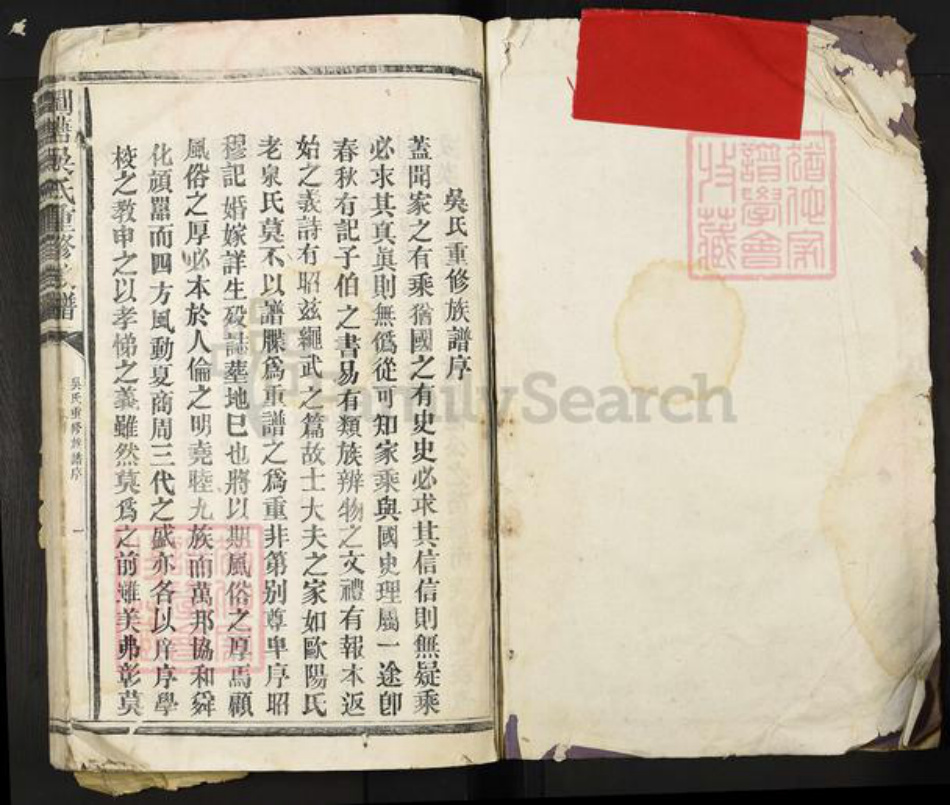 吳氏重修族譜序
蓋聞家之有乘猶國之有史史必求其信信則無疑乘
必求其真眞則無僞從可知家乘與國史理屬一途卽
春秋有記子伯之書易有類族辨物之文禮有報本返
始之義詩有昭茲繩武之篇故士大夫之家如歐陽氏
老泉氏莫不以譜牒爲重譜之爲重非第别尊卑序昭
穆記婚嫁詳生歿誌塟地巳也將以期風俗之厚焉顧
風俗之厚必本於人倫之明堯睦九族而萬邦協和舜
化頑嚚而四方風動夏商周三代之盛亦各以庠序學
校之教申之以孝悌之義雖然莫爲之前雖美弗彰莫
吳氏重修族譜序
一
吳氏重修族譜
譜學會
收藏
FamilySearch